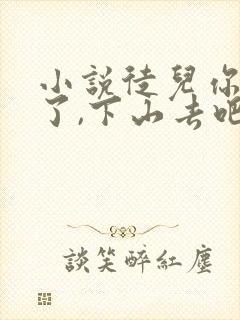 小說徒兒你
了,下山去吧
談笑醉紅塵